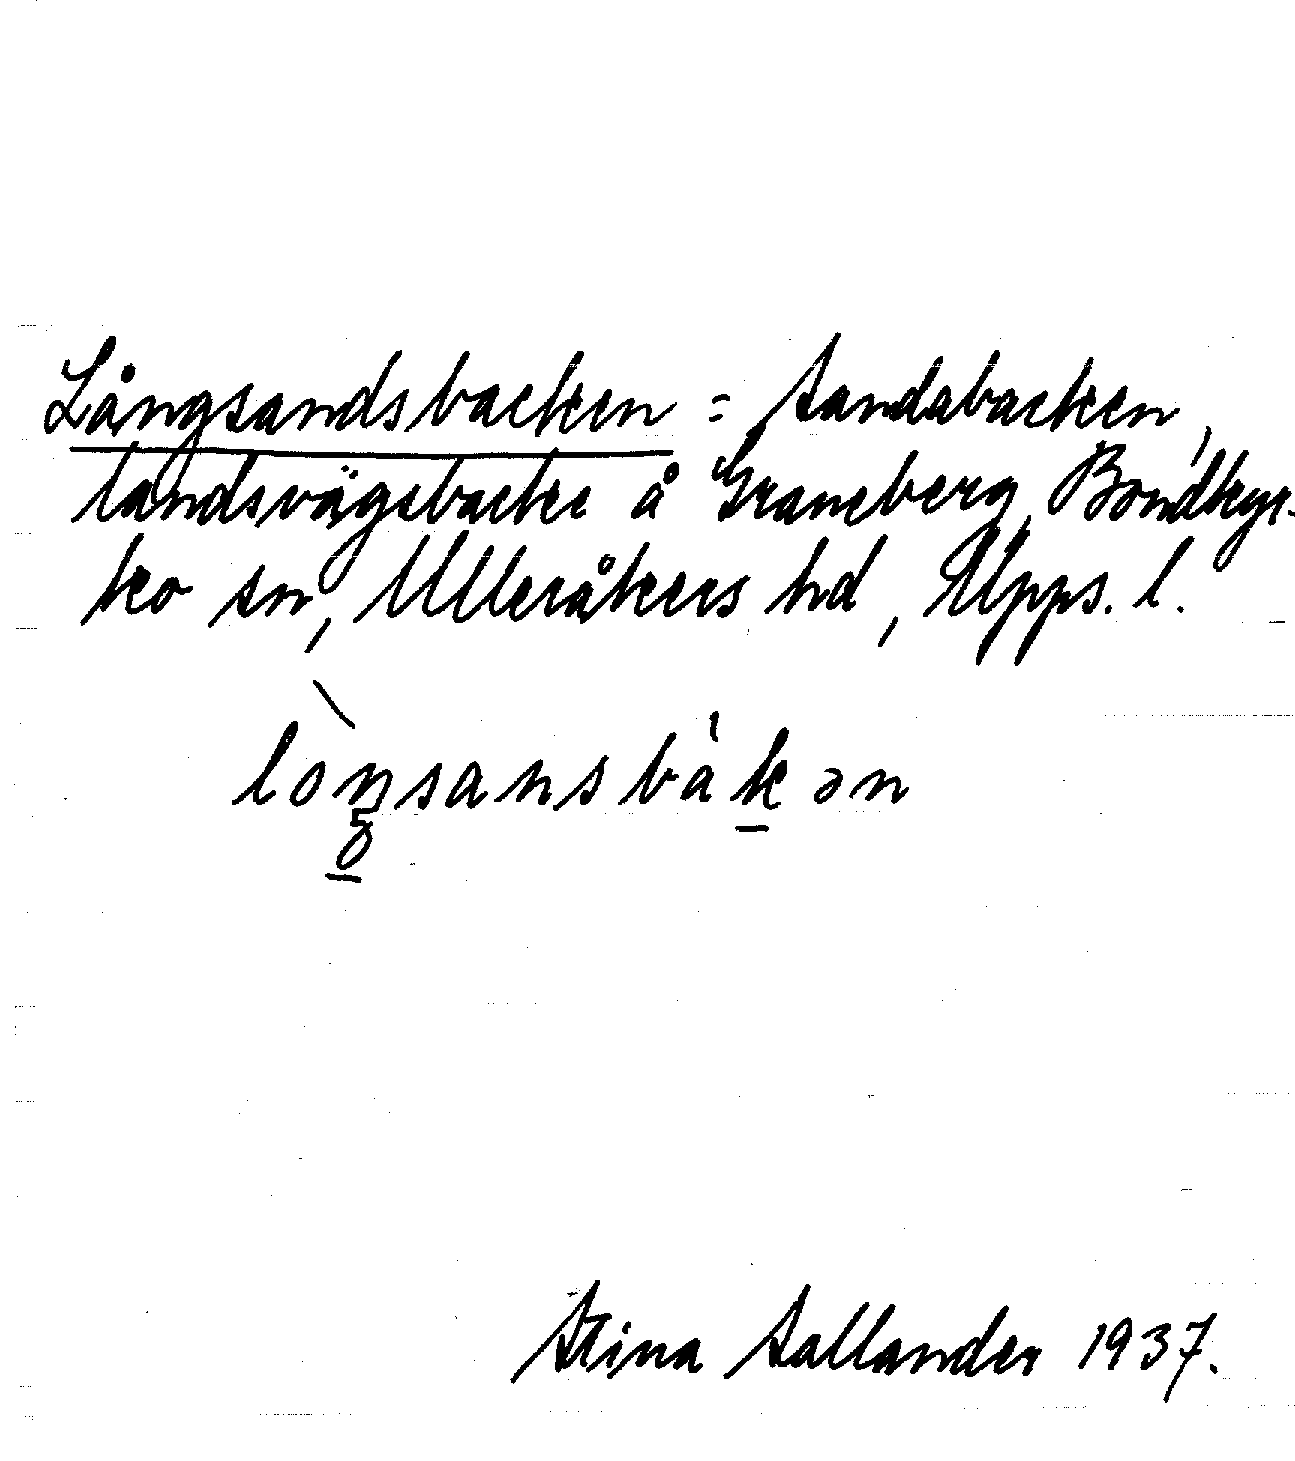 Långsandsbacken = Sandabacken,
landsvägsbacke å Graneberg, Bondkyr-
ko sn, Ulleråkers hd, Upps. l.
lòŋsansbàkən
Stina Sallander 1937.